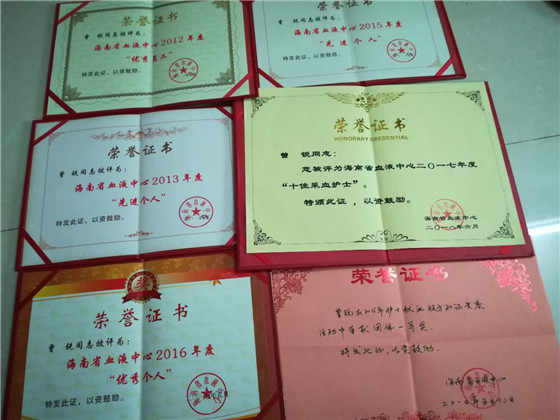 荣誉证书
曾 锐同志被评为:
海南省血液中心2012年度
“优秀员工”
特发此证，以资鼓励。
荣誉证书
曾 锐同志被评为:
海南省血液中心2015年度
“先进个人”
特发此证，以资鼓励。
荣誉证书
曾 锐同志被评为:
海南省血液中心2013年度
“先进个人”
特发此证，以资鼓励。
荣誉证书
HONORARY CREDENTIAL
曾 锐同志:
您被评为海南省血液中心二〇一七年度
“十佳采血护士”。
特颁此证，以资鼓励。
海南省血液中心
二〇一八年六月
荣誉证书
曾 锐同志被评为:
海南省血液中心2016年度
“优秀个人”
特发此证，以资鼓励。
荣誉证书
团体一等奖
特发此证,以资鼓励.
海南省血液中心